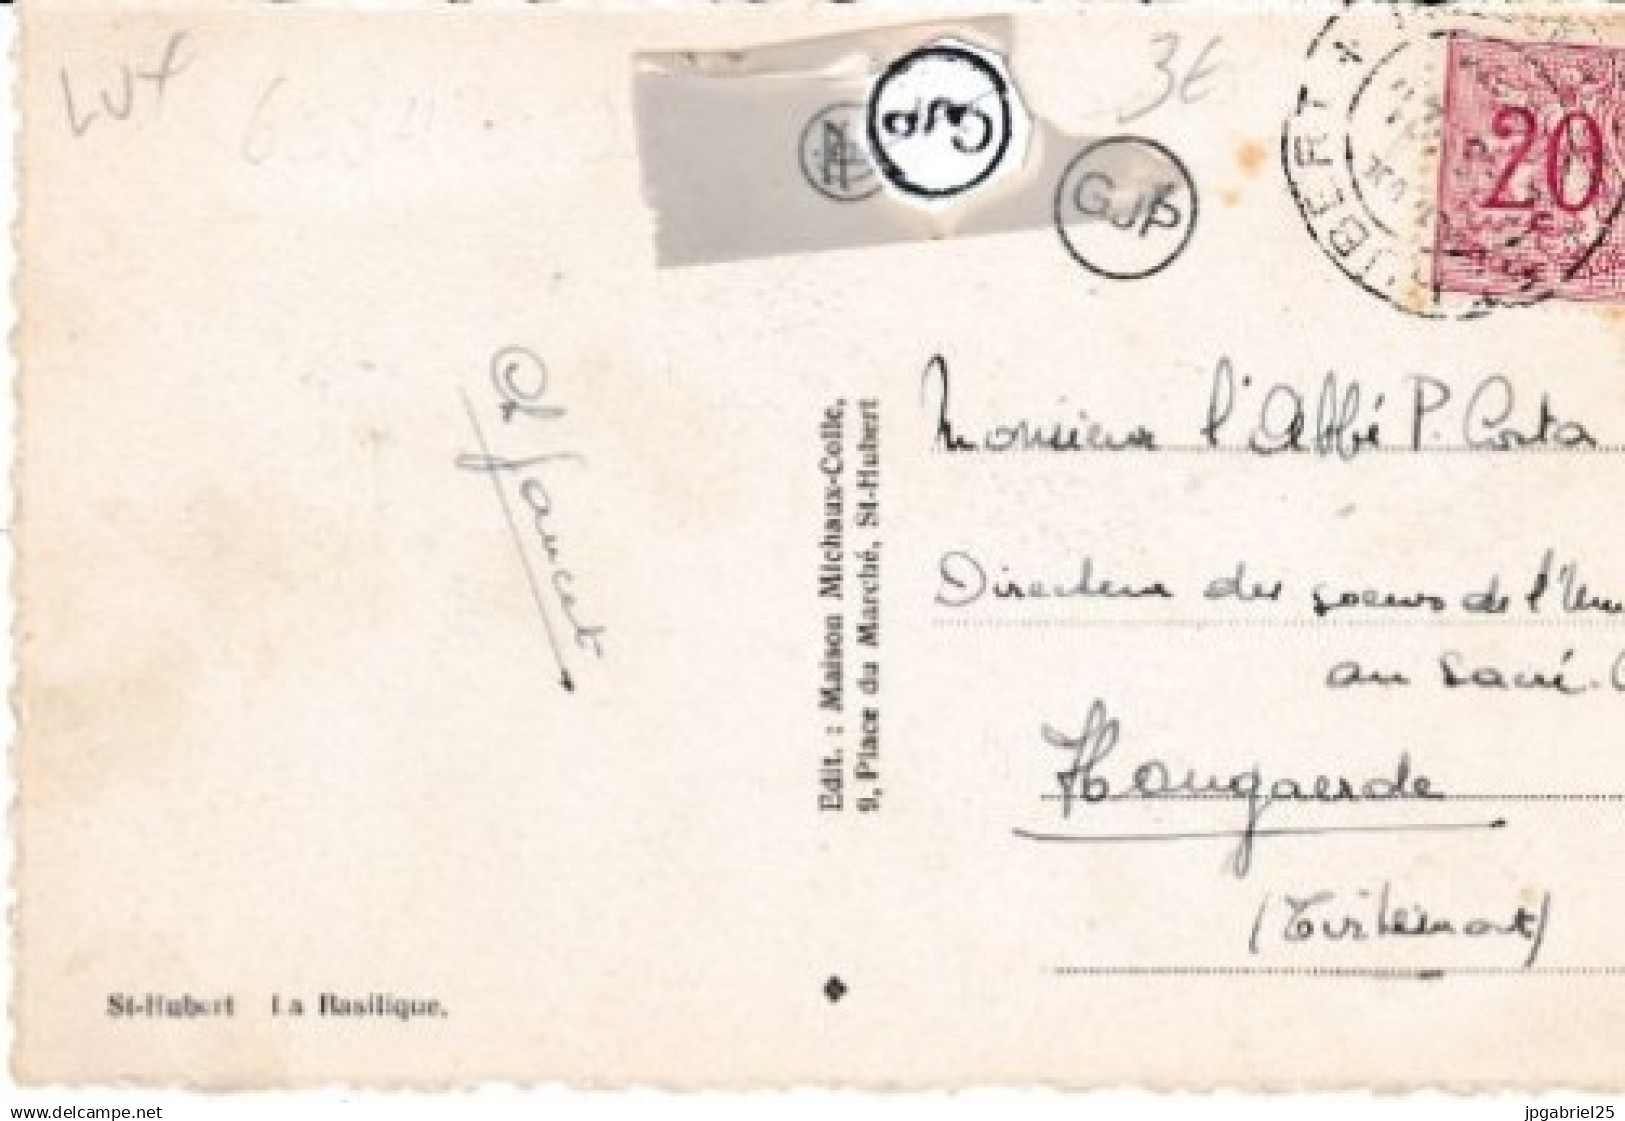 Lux
3€
GJP
GJP
UBERT
20
Ch Jancet
Edit. : Maison Michaux-Colle,
9, Place du Marché, St-Hubert
Monsieur l'Abbé P. Costa
Directeur des soeurs de l'
au Sacré-
Hougaerde
(Tirlemont)
St-Hubert La Basilique.
delcampe.net
jpgabriel25